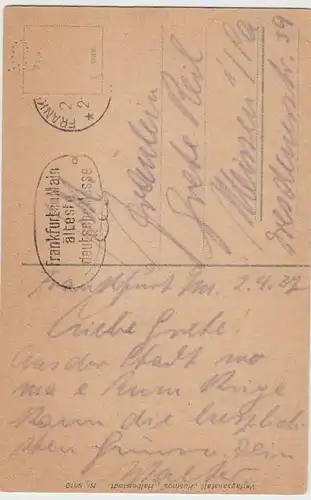 FRANKF
2
* 2
Frankfurt am Main
älteste
deutsche Messe
Fräulein
Grete Keil
Meissen i/Sa
Dresdenerstr. 39
Frankfurt M. 2.4.27
Liebe Grete!
Aus der Stadt wo
man kaum Ruhe
kann die herzlich
sten Grüsse. Dein
Verlagsanstalt „Kosmos“, Halberstadt.
Nr. 9810